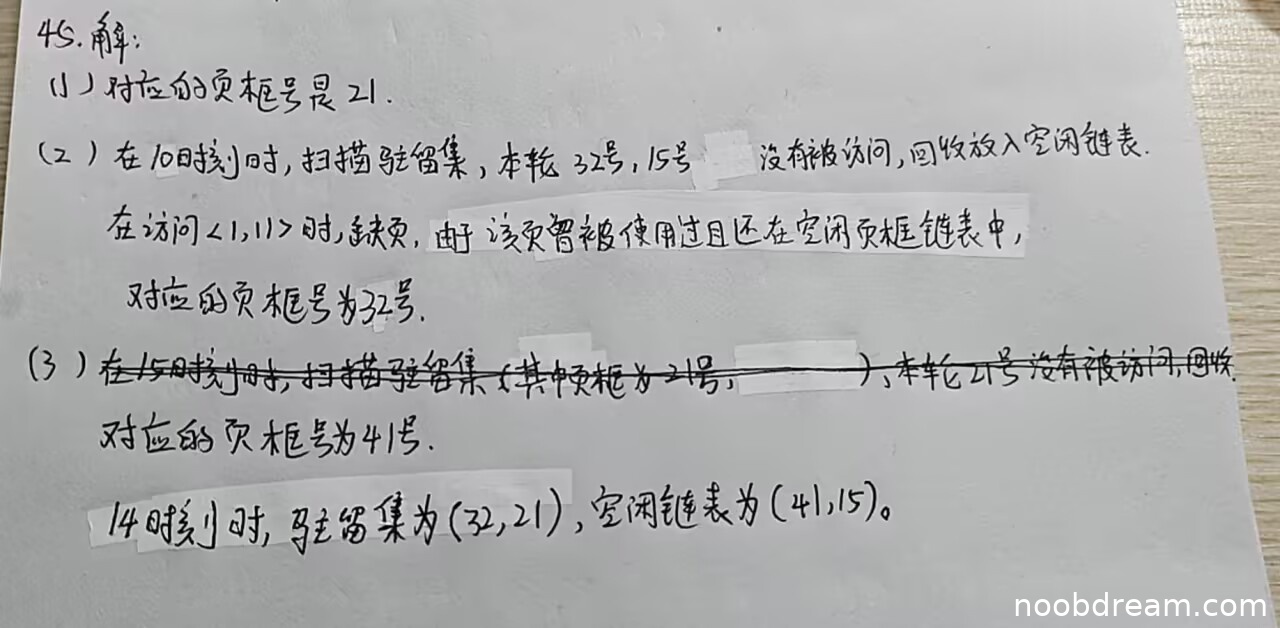 45.解:
(1)对应的页框号是21.
(2)在10时刻时,扫描驻留集,本轮 32号,15号 没有被访问,回收放入空闲链表.
在访问<1,11>时,缺页,由于该页曾被使用过且还在空闲页框链表中,
对应的页框号为32号.
(3)在15时刻时,扫描驻留集(其中页框为21号, ),本轮21号没有被访问,回收.
对应的页框号为41号.
14时刻时,驻留集为(32,21),空闲链表为(41,15)。
noobdream.com